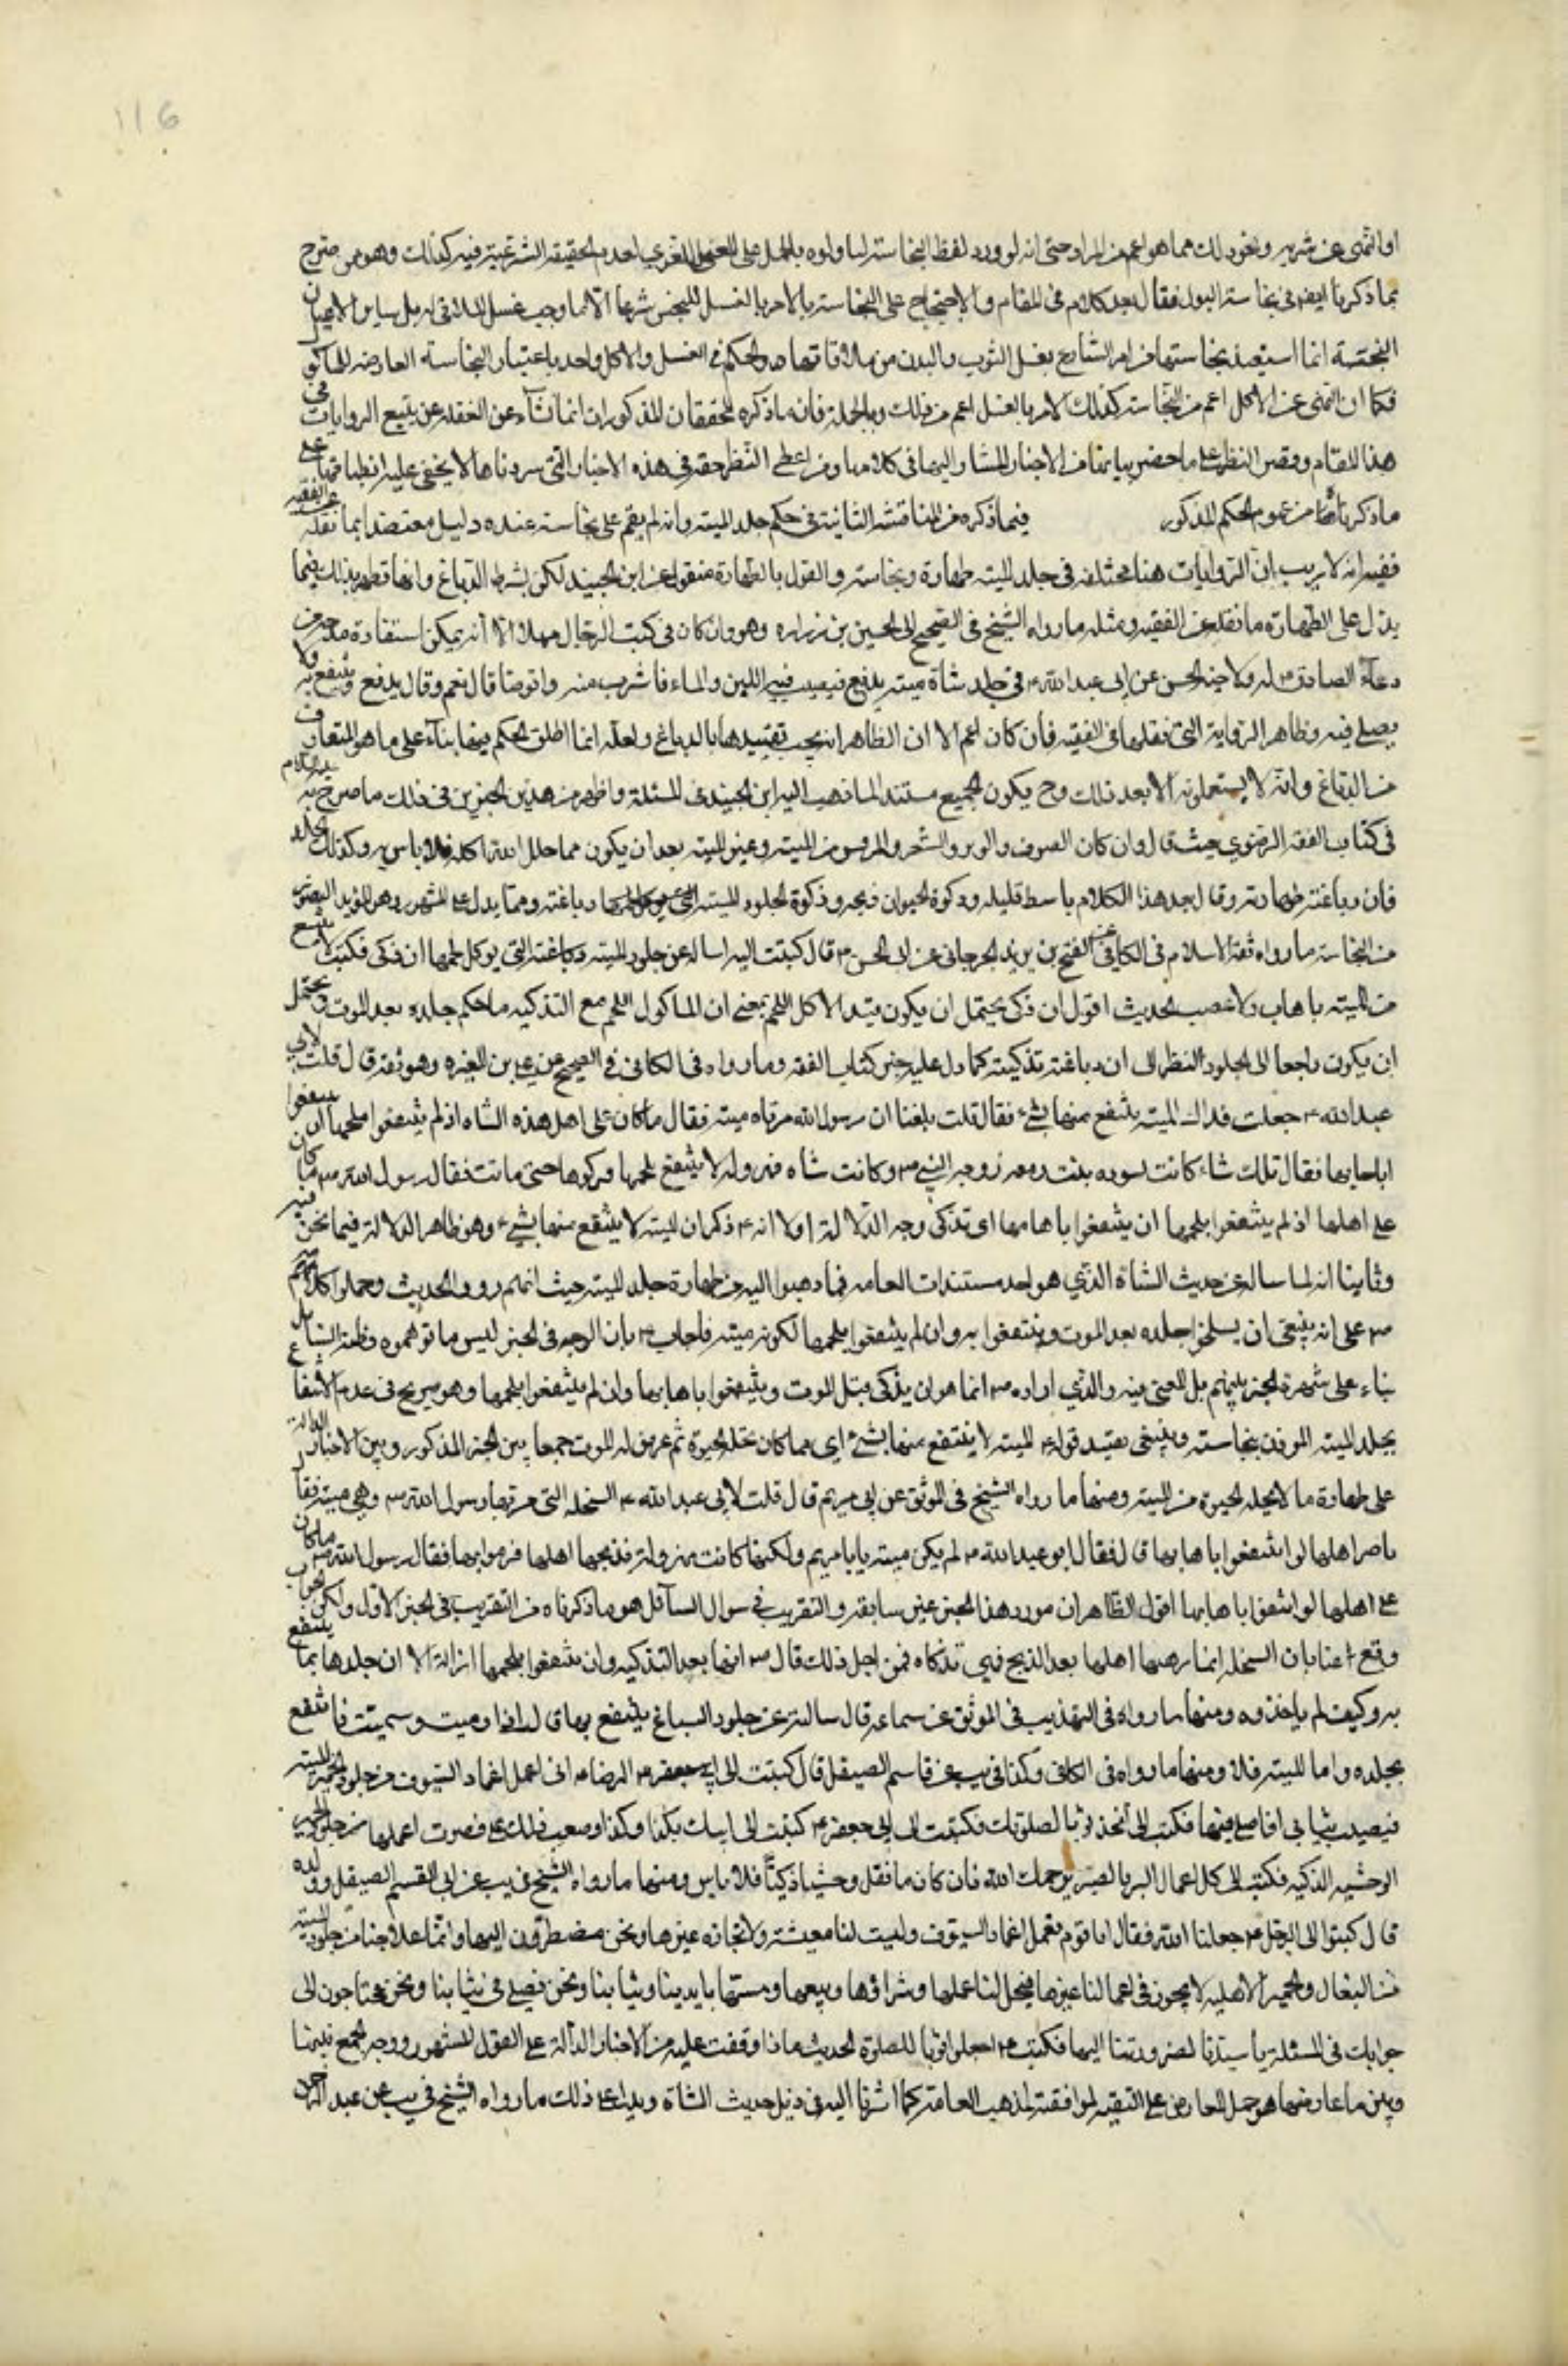 116
او النهى عن شربه ونحو ذلك مما هو اعم من المراد حتى انه لو ورد لفظ النجاسة لما ولوه بالحمل على المعنى اللغوي لعدم الحقيقة الشرعية فيه كذلك وهو من صرح
بما ذكرنا ايضا في نجاسة البول فقال بعد كلام في المقام والاحتجاج على النجاسة بالامر بالغسل للنجس شرعا الا ما وجب غسل الملاقى له بل ساير الاعيان
النجسة انما استفيد نجاستها من امر الشارع بغسل الثوب والبدن من ملاقاتها والحكم في الغسل والاكل واحد باعتبار النجاسة العارضه للماكول
فكما ان النهى عن الاكل اعم من النجاسة كذلك الامر بالغسل اعم من ذلك وبالجملة فان ما ذكره المحققان المذكوران انما نشاء عن الغفلة عن تتبع الروايات في
هذا المقام وقصر النظر على ما حضر ببالهما من الاخبار المشار اليها في كلامهما ومن اعطى النظر حقه في هذه الاخبار التي سردناها لا يخفى عليه انطباقها على
ما ذكرناه من عموم الحكم المذكور فيما ذكره من المناقشة الثانية في حكم جلد الميتة وانه لم يقم على نجاسته عنده دليل معتضدا بما نقله عن الفقيه
ففيه انه لا ريب ان الروايات هنا مختلفه في جلد الميته طهارة ونجاسة والقول بالطهارة منقول عن ابن الجنيد لكن بشرط الدباغ وانها قطهر بذلك فمما
يدل على الطهارة ما نقله عن الفقيه ومثله ما رواه الشيخ في الصحيح الى الحسين بن زراره وهو وان كان في كتب الرجال مهملا الا انه يمكن استفادة مدحه من
دعاء الصادق ع له ولاخيه الحسن عن ابى عبد الله ع في جلد شاة ميته يدبغ فيصب فيه اللبن والماء فاشرب منه واتوضا قال نعم وقال يدبغ وينتفع به ولا
يصلى فيه وظاهر الرواية التي نقلها في الفقيه فان كان اعم الا ان الظاهر انه يجب تقييدها بالدباغ ولعله انما اطلق الحكم فيها بناء على ما هو المتعارف
من الدباغ وانه لا يستعملونه الا بعد ذلك وح يكون الجميع مستند لما ذهب اليه ابن الجنيد في المسئلة واظهر من هذين الخبرين في ذلك ما صرح به عليه السلام
في كتاب الفقه الرضوي حيث قال وان كان الصوف والوبر والشعر والريش من الميته وغير الميته بعد ان يكون مما حلل الله اكله فلا باس به وكذلك الجلد
فان دباغته طهارته وقال بعد هذا الكلام باسط قليله وذكوة الحيوان ذبحه وذكوة الجلود الميته دباغته ومما يدل على المشهور وهو المؤيد المنصور
من النجاسة ما رواه ثقة الاسلام في الكافي عن الفتح بن يزيد الجرجاني عن ابى الحسن ع قال كبتت اليه اساله عن جلود الميته التي يوكل لحمها ان ذكى فكتب لا ينتفع
من الميته باهاب ولا عصب الحديث اقول ان ذكى يحتمل ان يكون قيدا لاكل اللحم بمعنى ان الماكول اللحم مع التذكيه ما حكم جلده بعد الموت ويحتمل
ان يكون راجعا الى الجلود النظر الى ان دباغته تذكيته كما دل عليه خبر كتاب الفقه وما رواه في الكافي في الصحيح عن على بن المغيره وهو ثقه قال قلت لابي
عبد الله ع جعلت فداك الميته ينتفع منها بشيء فقال قلت بلغنا ان رسول الله مر بشاه ميته فقال ما كان على اهل هذه الشاه اذ لم ينتفعوا بلحمها ان ينتفعوا
باهابها فقال تلك شاة كانت لسوده بنت زمعه زوجه النبي ص وكانت شاه مهزوله لا ينتفع بلحمها فتركوها حتى ماتت فقال رسول الله ص ما كان
على اهلها اذ لم ينتفعوا بلحمها ان ينتفعوا باهابها اى تذكى وجه الدلالة اولا انه ع ذكر ان الميته لا ينتفع منها بشيء وهو ظاهر الدلالة فيما نحن فيه
وثانيا انه لما ساله عن حديث الشاة الذي هو احد مستندات العامه فيما ذهبوا اليه من طهارة جلد الميته حيث انهم رووا الحديث وحملوا كلامه
ص على انه ينبغى ان يسلخوا جلده بعد الموت وينتفعوا به وان لم ينتفعوا بلحمها لكونه ميته فاجاب ع بان الوجه في الخبر ليس ما توهموه وظنه السائل
بناء على شهرة الخبر بينهم بل المعنى فيه والذي اراده ص انما هو ان يذكى قبل الموت وينتفعوا باهابها وان لم ينتفعوا بلحمها وهو صريح في عدم الانتفاع
بجلد الميته الموذن بنجاسته وينبغى تقييد قوله ع الميته لا ينتفع منها بشيء اى مما كان تحله الحيوة ثم عرض له الموت جمعا بين الخبر المذكور وبين الاخبار الدالة
على طهارة ما لا تحله الحيوة من الميته ومنها ما رواه الشيخ في الموثق عن ابى مريم قال قلت لابى عبد الله ع السخله التي مر بها رسول الله ص وهى ميته فقال
ما ضر اهلها لو انتفعوا باهابها قال فقال ابو عبد الله ع لم يكن ميته يابا مريم ولكنها كانت مهزولة فذبحها اهلها فرموا بها فقال رسول الله ص ما كان
على اهلها لو انتفعوا باهابها اقول الظاهر ان مورد هذا الخبر غير سابقه والتقريب في سوال السائل هو ما ذكرناه من التقريب في الخبر الاول ولكن الجواب
وقع هنا بان السخله انما رماها اهلها بعد الذبح فهى مذكاه فمن اجل ذلك قال ص انها بعد التذكيه وان لم ينتفعوا بلحمها الا ان جلدها مما ينتفع
به وكيف لم ياخذوه ومنها ما رواه في التهذيب في الموثق عن سماعه قال سالته عن جلود السباع ينتفع بها قال اذا رميت وسميت فانتفع
بجلده واما الميته فلا ومنها ما رواه في الكافي وكذا في يب عن قاسم الصيقل قال كبتت الى الرضا ع انى اعمل اغماد السيوف من جلود الحمر الميته
فيصيب ثيابى افاصلى فيها فكتب الى اتخذ ثوبا لصلوتك فكتبت الى ابى جعفر ع كبتت الى ابيك بكذا وكذا وصعب ذلك على فصرت اعملها من جلود الحمر
الوحشيه الذكيه فكتب الى كل اعمال البر بالصبر يرحمك الله فان كان ما تعمل وحشيا ذكيا فلا باس ومنها ما رواه الشيخ في يب عن ابى القسم الصيقل وولده
قال كبتوا الى الرجل ع جعلنا الله فقال انا قوم نعمل اغماد السيوف وليست لنا معيشة ولا تجارة غيرها ونحن مضطرون اليها وانما علاجنا من جلود الميته
من البغال والحمير الاهليه لا يجوز في اعمالنا غيرها فيحل لنا عملها وشراؤها وبيعها ومستها بايدينا وثيابنا ونحن نصلى في ثيابنا ونحن محتاجون الى
جوابك في المسئلة يا سيدنا لضرورتنا اليها فكتب ع اجعلوا ثوبا للصلوة الحديث ما ذا وقفت عليه من الاخبار الدالة على القول المشهور ووجه الجمع بينها
وبين ما عارضها هو حمل المعارض على التقيه لموافقته لمذهب العامة كما اشرنا اليه في ذيل حديث الشاة ويدل على ذلك ما رواه الشيخ في يب عن عبد الرحمن